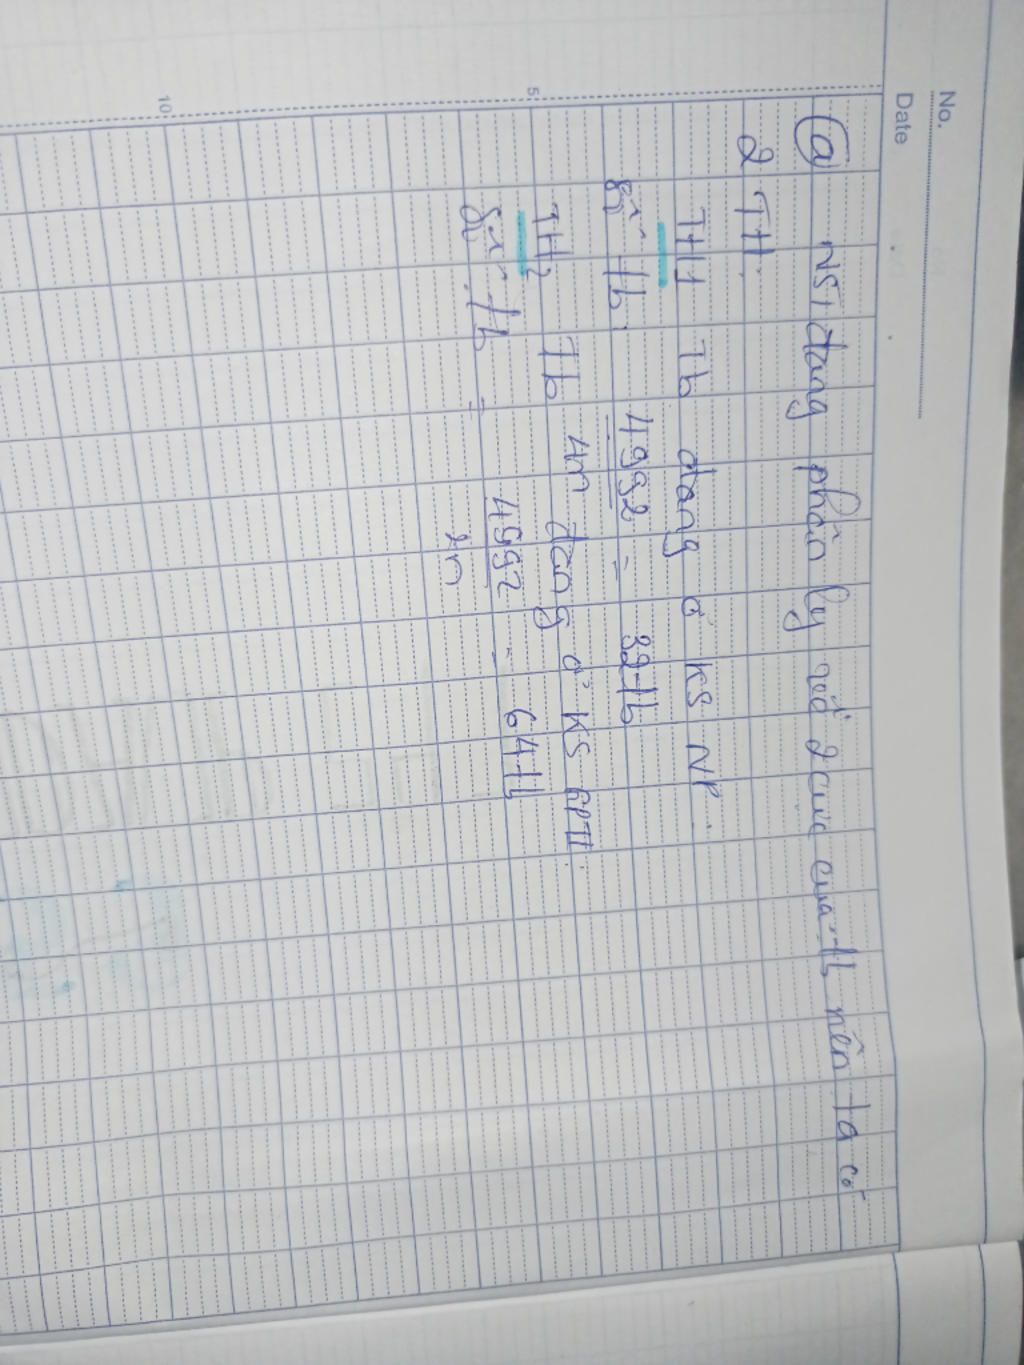 No.
Date
a NST đang phân ly về 2 cực của tb nên ta có
2 TH:
TH1 Tb đang ở KS NP:
Số tb: 4992 = 32 tb
TH2 Tb đang ở KS GPII:
4n
Số tb = 4992 = 64 tb
2n
5
10